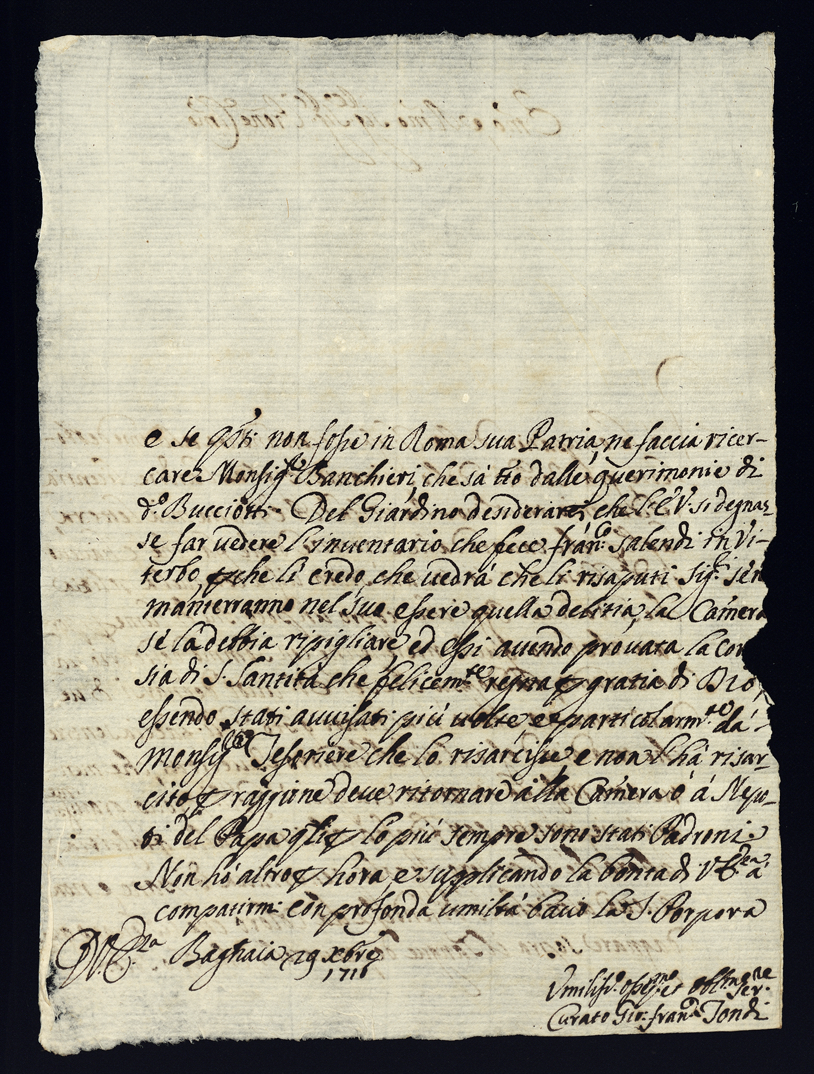 e se qsti non fosse in Roma sua Patria, ne faccia ricer-
care Monsig.re Banchieri, che sà tto dalle querimonie di
d.o Bucciotti. Del Giardino desiderarei, che l'E.V. si degnas
se far vedere l'inventario che fece fran.co Salendi in Vi-
terbo che li credo, che vedrà che li risaputi Sig.ri se n
manterranno nel suo essere quella delitia, la Camera
se la debbia ripigliare ed essi avendo provata la
sia di S. Santità che felicem.te regna p gratia di Dio,
essendo stati avvisati più volte e particolarm.te dà
Monsig.re Tesoriere che lo risarcisse e non l'hà risar-
cito p raggione deve ritornare alla Camera ò à Nepo-
ti del Papa qli p lo più sempre sono stati Padroni.
Non hò altro p hora, e supplicando la bontà di V. Em.za à
compatirmi con profonda umiltà bacio la S. Porpora
D. V. Em.za Bagnaia 29 xbre
1716
Umiliss.o et obl.mo ser.re
Curato Gio: fran.co Tondi